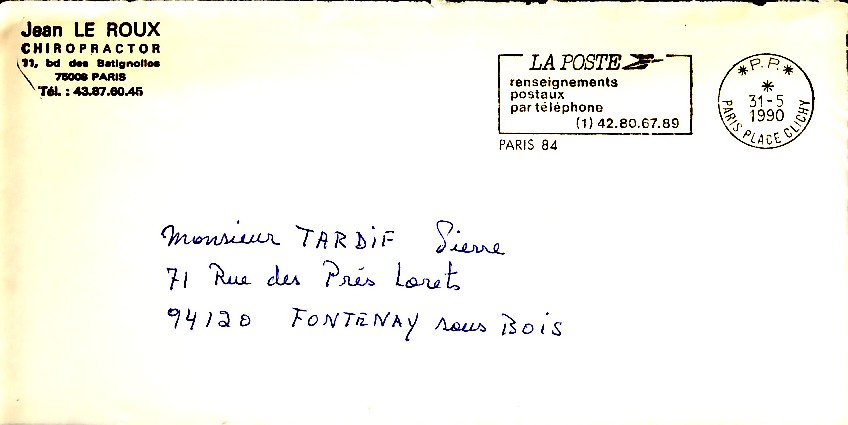 Jean LE ROUX
CHIROPRACTOR
11, bd des Batignolles
75008 PARIS
Tél. : 43.87.60.45
LA POSTE
renseignements
postaux
par téléphone
(1) 42.80.67.89
PARIS 84
*P.P.*
*
31-5
1990
PARIS PLACE CLICHY
Monsieur TARDIF Pierre
71 Rue des Prés Lorets
94120 FONTENAY sous BOIS